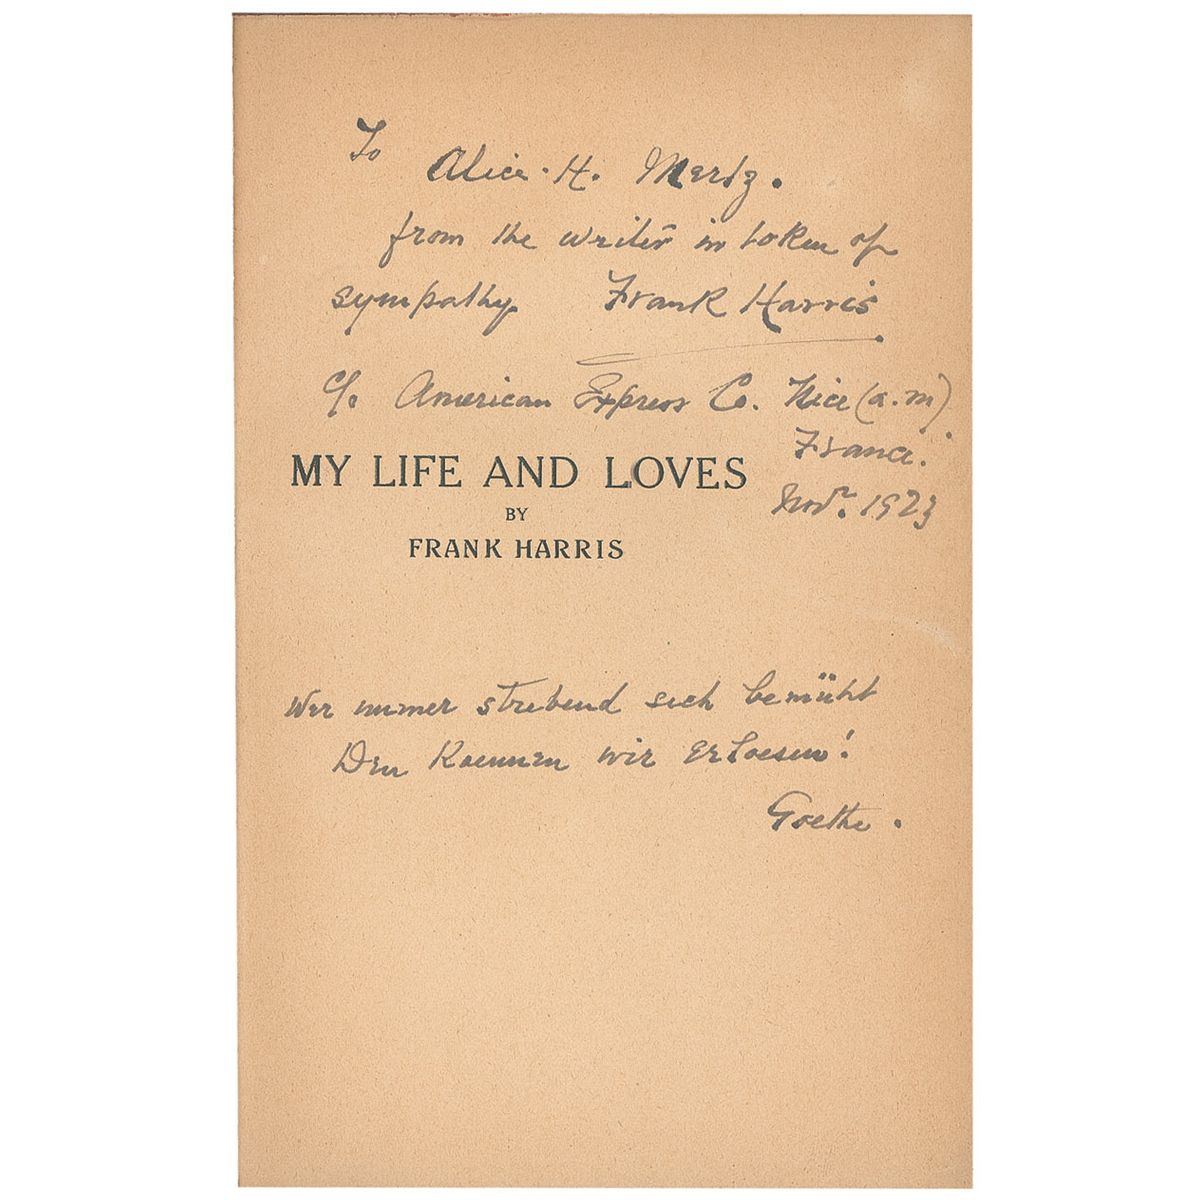 To
Alice. H. Mertz.
from the writer in token of
sympathy Frank Harris
c/o American Express Co. Nice (a.m).
France.
Novr. 1923
MY LIFE AND LOVES
BY
FRANK HARRIS
Wer immer strebend sich bemüht
Den Koennen wir Erloesen!
Goethe.